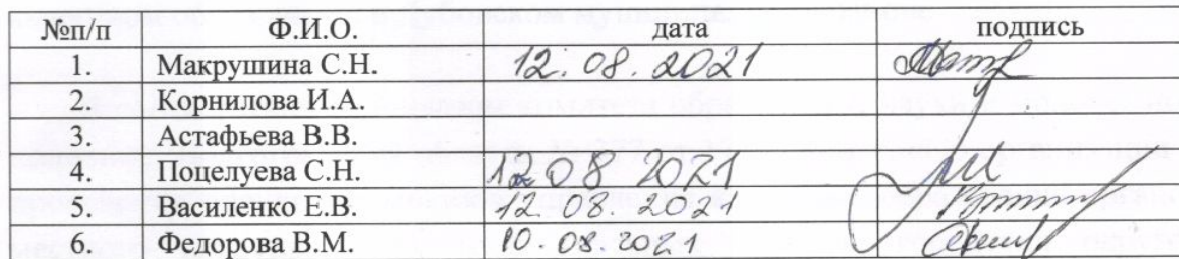 №п/п Ф.И.О. дата подпись
1. Макрушина С.Н. 12.08.2021
2. Корнилова И.А.
3. Астафьева В.В.
4. Поцелуева С.Н. 12 08 2021
5. Василенко Е.В. 12.08.2021
6. Федорова В.М. 10.08.2021